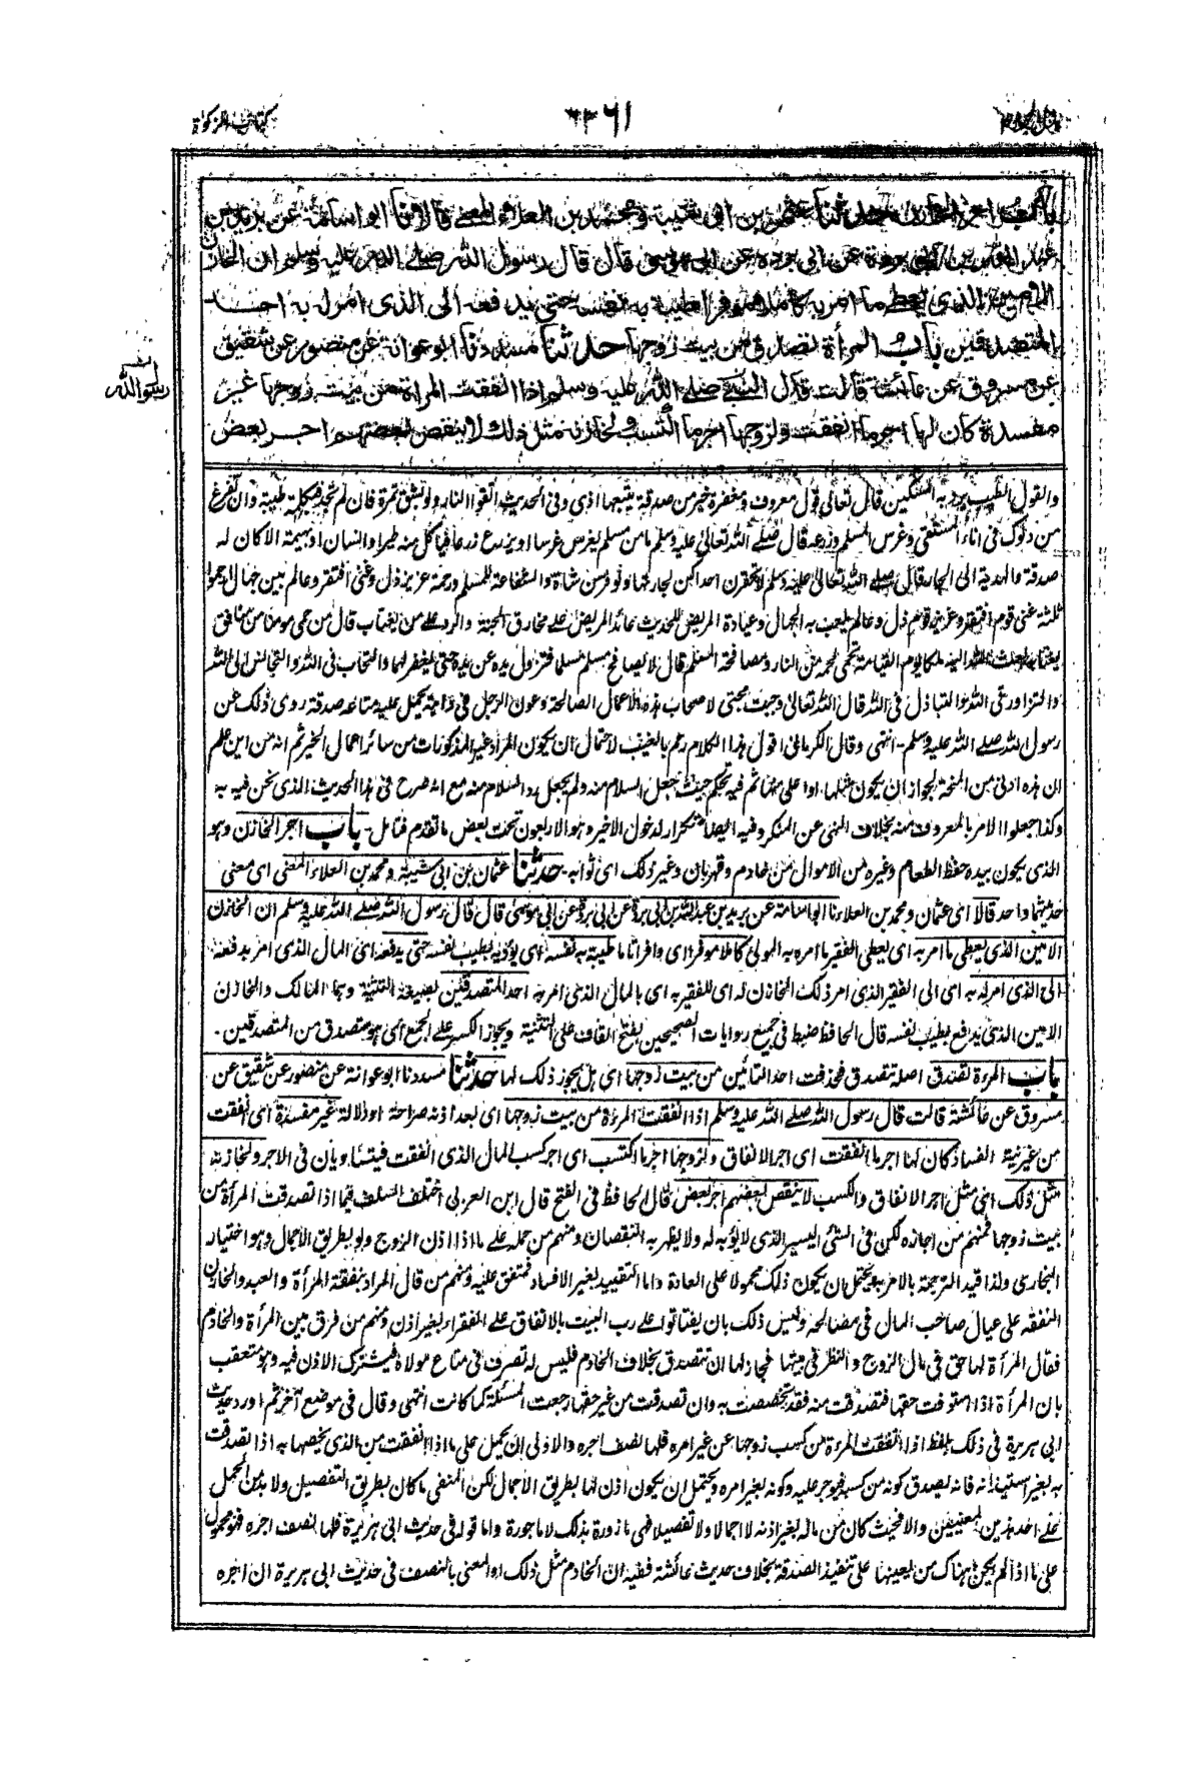 كتاب الزكوة
باب اجر الخازن حدثنا عثمان بن ابى شيبة ومحمد بن العلاء المعنى قالا نا ابو اسامة عن بريد بن
عبد الله بن ابى بردة عن ابى بردة عن ابى موسى قال قال رسول الله صلى الله عليه وسلم ان الخازن
الامين الذى يعطى ما امر به كاملا موفرا طيبة به نفسه حتى يدفعه الى الذى امر له به احد
المتصدقين باب المرأة تصدق من بيت زوجها حدثنا مسدد نا ابو عوانة عن منصور عن شقيق
عن مسروق عن عائشة قالت قال النبى صلى الله عليه وسلم اذا انفقت المرأة من بيت زوجها غير
رسول الله
مفسدة كان لها اجر ما انفقت ولزوجها اجر ما اكتسب ولخازنه مثل ذلك لا ينقص بعضهم اجر بعض
والقول الطيب يرد به المسكين قال تعالى قول معروف ومغفرة خير من صدقة يتبعها اذى وفى الحديث اتقوا النار ولو بشق تمرة فان لم تجد فبكلمة طيبة وان تفرغ
من دلوك فى اناء المستقى وغرس المسلم وزرعه قال صلى الله تعالى عليه وسلم ما من مسلم يغرس غرسا او يزرع زرعا فياكل منه طير او انسان او بهيمة الا كان له
صدقة والهدية الى الجار قال صلى الله تعالى عليه وسلم لا تحقرن احداكن لجارتها ولو فرسن شاة والشفاعة للمسلم ورحمة عزيز ذل وغنى افتقر وعالم بين جهال ارحموا
ثلثة غنى قوم افتقر وعزيز قوم ذل وعالم يلعب به الجهال وعيادة المريض للحديث عائد المريض على مخارق الجنة والرد على من يغتاب قال من حمى مومنا من منافق
يغتابه بعث الله اليه ملكا يوم القيامة يحمى لحمه من النار ومصافحة المسلم قال لا يصافح مسلم مسلما فتزول يده عن يده حتى يغفر لهما والتحاب فى الله والتجالس الى الله
والتزاور فى الله والتباذل فى الله قال الله تعالى وجبت محبتى لاصحاب هذه الاعمال الصالحة وعون الرجل فى دابته يحمل عليه متاعه صدقة روى ذلك عن
رسول الله صلى الله عليه وسلم - انتهى وقال الكرمانى اقول هذا الكلام رجم بالغيب لاحتمال ان يكون المراد غير المذكورات من سائر اعمال الخير ثم انه من اين علم
ان هذه ادنى من المنحة لجواز ان يكون مثلها او اعلى منها ثم فيه تحكم حيث جعل السلام منه ولم يجعل رد السلام منه مع انه صرح فى هذا الحديث الذى نحن فيه به
وكذا جعلوا الامر بالمعروف منه بخلاف النهى عن المنكر وفيه ايضا تكرار لدخول الاخير وهو الاربعون تحت بعض ما تقدم فتامل - باب اجر الخازن وهو
الذى يكون بيده حفظ الطعام وغيره من الاموال من خادم وقهرمان وغير ذلك اى ثوابه - حدثنا عثمان بن ابى شيبة ومحمد بن العلاء المعنى اى معنى
حديثهما واحد قالا اى عثمان ومحمد بن العلاء نا ابو اسامة عن بريد بن عبد الله بن ابى بردة عن ابى بردة عن ابى موسى قال قال رسول الله صلى الله عليه وسلم ان الخازن
الامين الذى يعطى ما امر به اى يعطى الفقير ما امره به المولى كاملا موفرا اى وافرا تاما طيبة به نفسه اى يؤديه بطيب نفسه حتى يدفعه اى المال الذى امر بدفعه
الى الذى امر له به اى الى الفقير الذى امر ذلك الخازن له اى للفقير به اى بالمال الذى امر به احد المتصدقين بصيغة التثنية وهما المالك والخازن
الامين الذى يدفع بطيب نفسه قال الحافظ ضبط فى جميع روايات الصحيحين بفتح القاف على التثنية ويجوز الكسر على الجمع اى هو متصدق من المتصدقين -
باب المرءة تصدق اصله تتصدق فحذفت احد التائين من بيت زوجها اى هل يجوز ذلك لها حدثنا مسدد نا ابو عوانة عن منصور عن شقيق عن
مسروق عن عائشة قالت قال رسول الله صلى الله عليه وسلم اذا انفقت المرءة من بيت زوجها اى بعد اذنه صراحة او دلالة غير مفسدة اى انفقت
من غير نية الفساد كان لها اجر ما انفقت اى اجر الانفاق ولزوجها اجر ما اكتسب اى اجر كسب المال الذى انفقت فيتساويان فى الاجر ولخازنه
مثل ذلك اى مثل اجر الانفاق والكسب لا ينقص بعضهم اجر بعض قال الحافظ فى الفتح قال ابن العربى اختلف السلف فيما اذا تصدقت المرأة من
بيت زوجها فمنهم من اجازه لكن فى الشئ اليسير الذى لا يؤبه له ولا يظهر به النقصان ومنهم من حمله على ما اذا اذن الزوج ولو بطريق الاجمال وهو اختيار
البخارى ولذا قيد الترجمة بالامر به ويحتمل ان يكون ذلك محمولا على العادة واما التقييد بغير الافساد فمتفق عليه ومنهم من قال المراد بنفقة المرأة والعبد والخازن
النفقة على عيال صاحب المال فى مصالحه وليس ذلك بان يفتاتوا على رب البيت بالانفاق على الفقراء بغير اذن ومنهم من فرق بين المرأة والخادم
فقال المرأة لها حق فى مال الزوج والنظر فى بيتها فجاز لها ان تتصدق بخلاف الخادم فليس له تصرف فى متاع مولاه فيشترك الاذن فيه وهو متعقب
بان المرأة اذا استوفت حقها فتصدقت منه فقد تخصصت به وان تصدقت من غير حقها رجعت المسئلة كما كانت انتهى وقال فى موضع آخر ثم اورد حديث
ابى هريرة فى ذلك بلفظ اذا انفقت المرءة من كسب زوجها عن غير امره فلها نصف اجره والاولى ان يحمل على ما اذا انفقت من الذى يخصها به اذا تصدقت
به بغير استيذانه فانه يصدق كونه من كسبه فيوجر عليه وكونه بغير امره ويحتمل ان يكون اذن لها بطريق الاجمال لكن المنفى ما كان بطريق التفصيل ولا بد من الحمل
على احد هذين المعنيين والا فحيث كان من ماله بغير اذنه لا اجمالا ولا تفصيلا فهى مازورة بذلك لا ماجورة واما قوله فى حديث ابى هريرة فلها نصف اجره فهو محمول
على ما اذا لم يكن هناك من يعينها على تنفيذ الصدقة بخلاف حديث عائشة ففيه ان للخادم مثل ذلك او المعنى بالنصف فى حديث ابى هريرة ان اجره